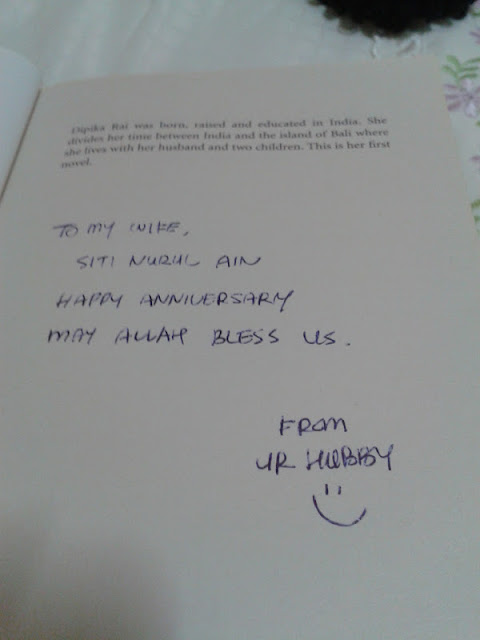 Dipika Rai was born, raised and educated in India. She
divides her time between India and the island of Bali where
she lives with her husband and two children. This is her first
novel.
TO MY WIFE,
SITI NURUL AIN
HAPPY ANNIVERSARY
MAY ALLAH BLESS US.
FROM
UR HUBBY